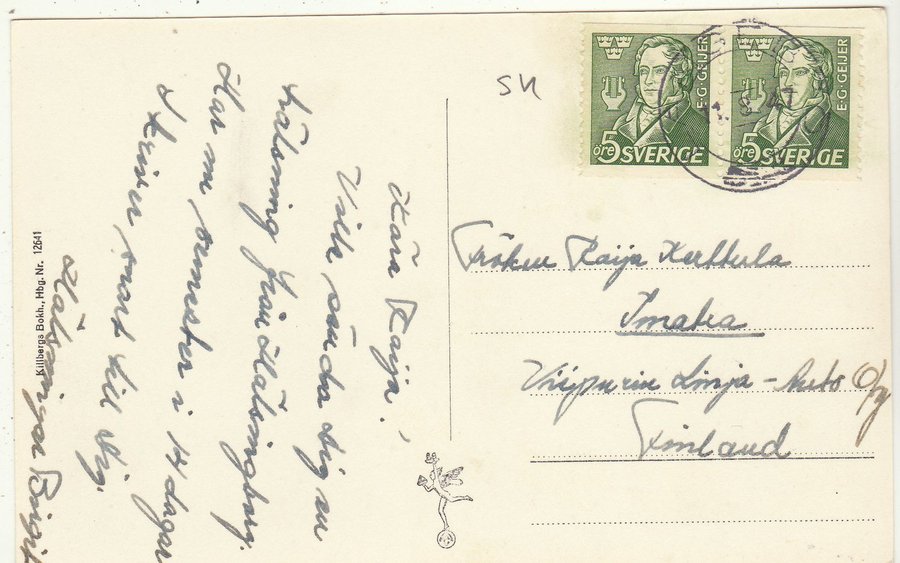 Kära Kaija!
Vill sända dig en
hälsning från Hälsingborg.
Har nu semester i 14 dagar
skriver snart till dig.
Hälsningar Birgit
Killbergs Bokh., Hbg. Nr. 12641
SU
E·G·GEIJER
5
öre SVERIGE
E·G·GEIJER
5
öre SVERIGE
8 47
Fröken Kaija Kerttula
Imatra
Viipurin Linja - Auto O/y
Finland